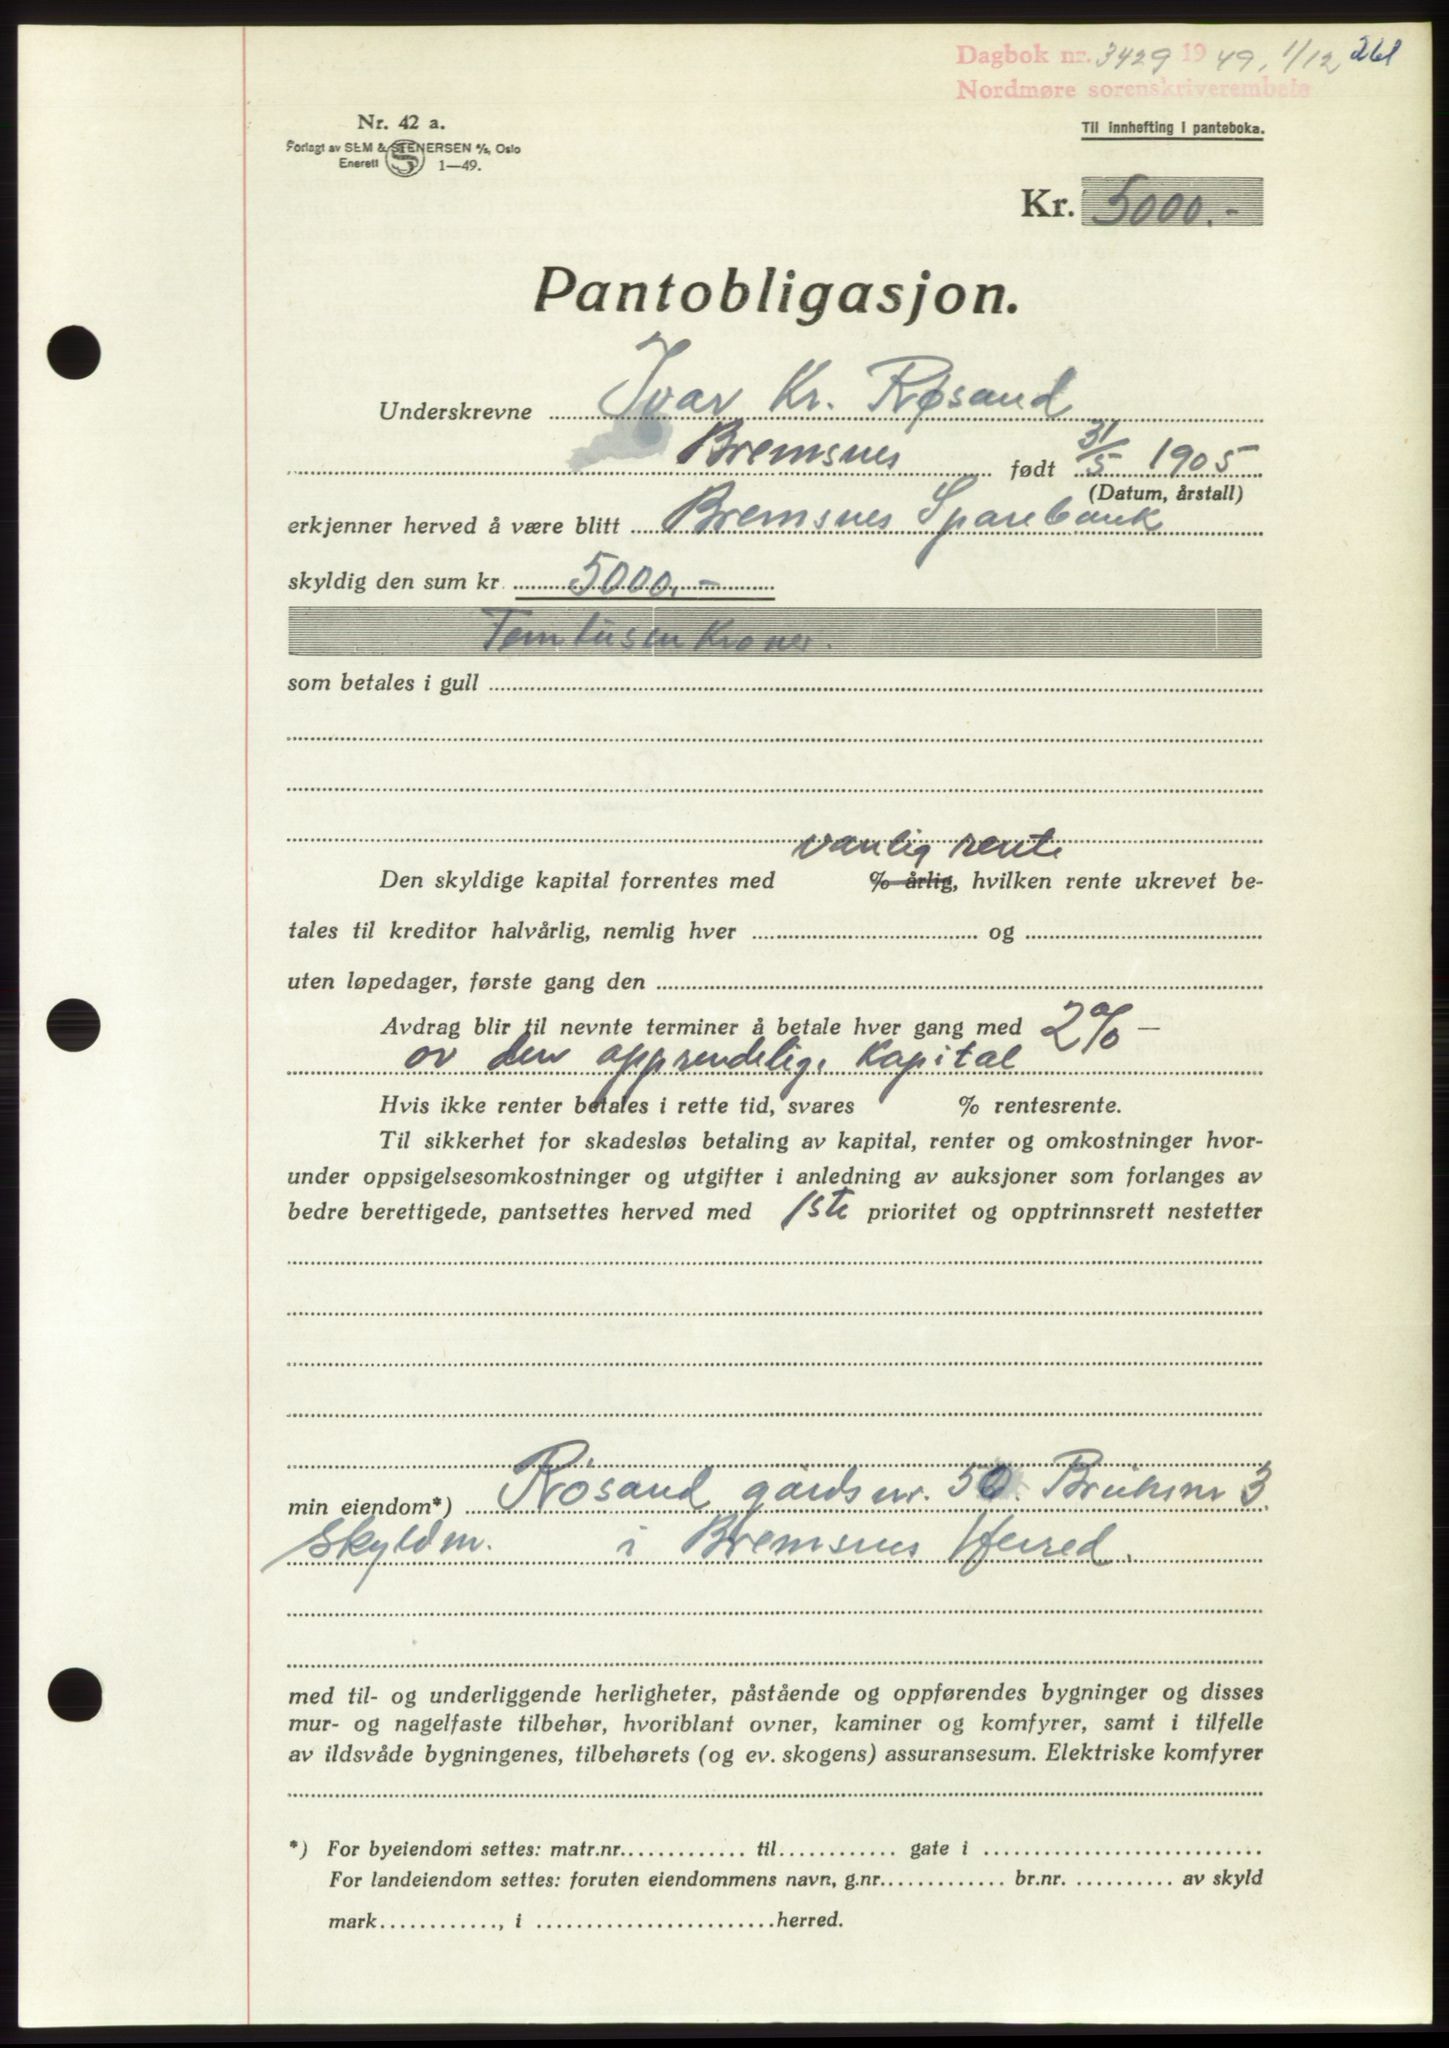 Dagbok nr. 3429 19 49, 1/12 261
Nordmøre sorenskriverembete
Nr. 42 a.
Forlagt av SEM & STENERSEN A/S, Oslo
Enerett S 1—49.
Til innhefting i panteboka.
Kr. 5000.-
Pantobligasjon.
Underskrevne Ivar Kr. Røsand
Bremsnes født 31/5 1905
(Datum, årstall)
erkjenner herved å være blitt Bremsnes Sparebank
skyldig den sum kr. 5000.-
Femtusen Kroner.
som betales i gull
vanlig rente
Den skyldige kapital forrentes med % årlig, hvilken rente ukrevet be-
tales til kreditor halvårlig, nemlig hver og
uten løpedager, første gang den
Avdrag blir til nevnte terminer å betale hver gang med 2% —
av den opprendelige Kapital
Hvis ikke renter betales i rette tid, svares % rentesrente.
Til sikkerhet for skadesløs betaling av kapital, renter og omkostninger hvor-
under oppsigelsesomkostninger og utgifter i anledning av auksjoner som forlanges av
bedre berettigede, pantsettes herved med 1ste prioritet og opptrinnsrett nestetter
min eiendom*) Røsand gårdsnr. 50. Bruksnr 3.
Skyldm. i Bremsnes Herred.
med til- og underliggende herligheter, påstående og oppførendes bygninger og disses
mur- og nagelfaste tilbehør, hvoriblant ovner, kaminer og komfyrer, samt i tilfelle
av ildsvåde bygningenes, tilbehørets (og ev. skogens) assuransesum. Elektriske komfyrer
*) For byeiendom settes: matr.nr. til gate i
For landeiendom settes: foruten eiendommens navn, g.nr. br.nr. av skyld
mark, i herred.